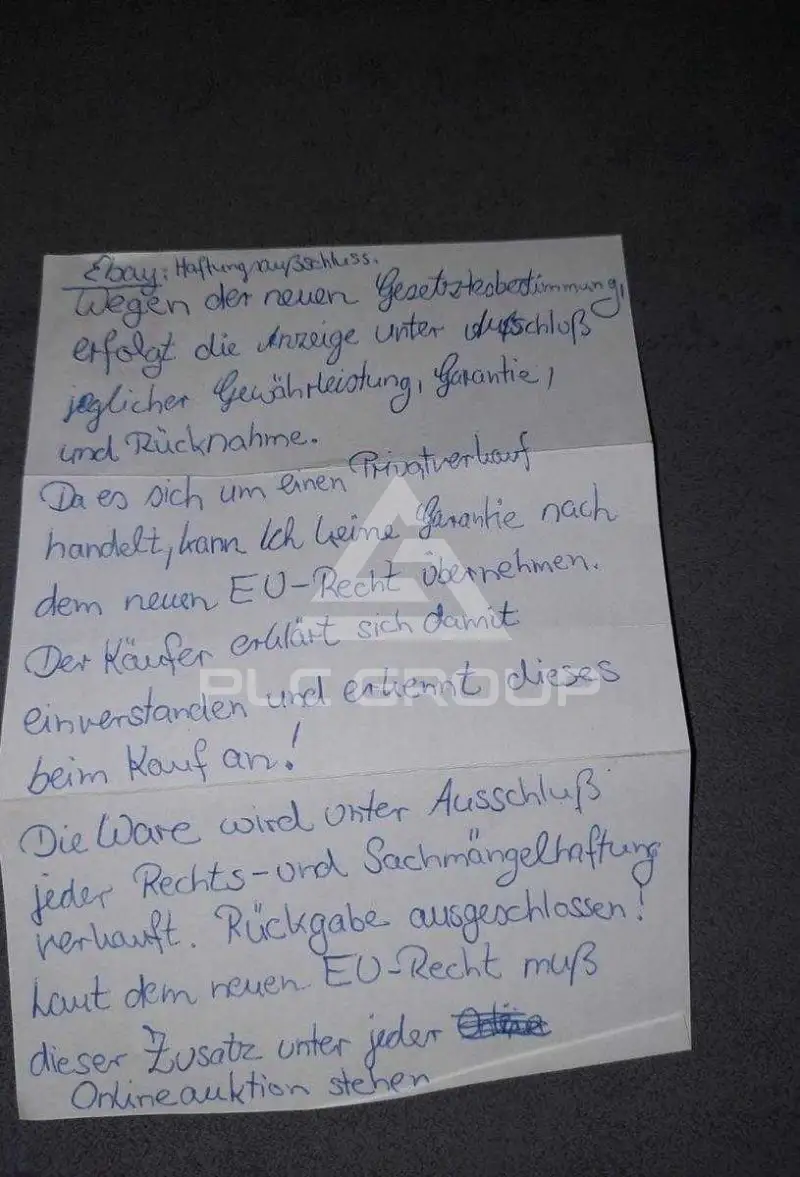 Ebay: Haftungsaußschluss.
Wegen der neuen Gesetztesbestimmung,
erfolgt die Anzeige unter Aufschluß
jeglicher Gewährleistung, Garantie,
und Rücknahme.
Da es sich um einen Privatverkauf
handelt, kann Ich keine Garantie nach
dem neuen EU-Recht übernehmen.
Der Käufer erklärt sich damit
einverstanden und erkennt dieses
beim Kauf an!
Die Ware wird unter Ausschluß
jeder Rechts- und Sachmängelhaftung
verkauft. Rückgabe ausgeschlossen!
Laut dem neuen EU-Recht muß
dieser Zusatz unter jeder
Onlineauktion stehen
PLC GROUP